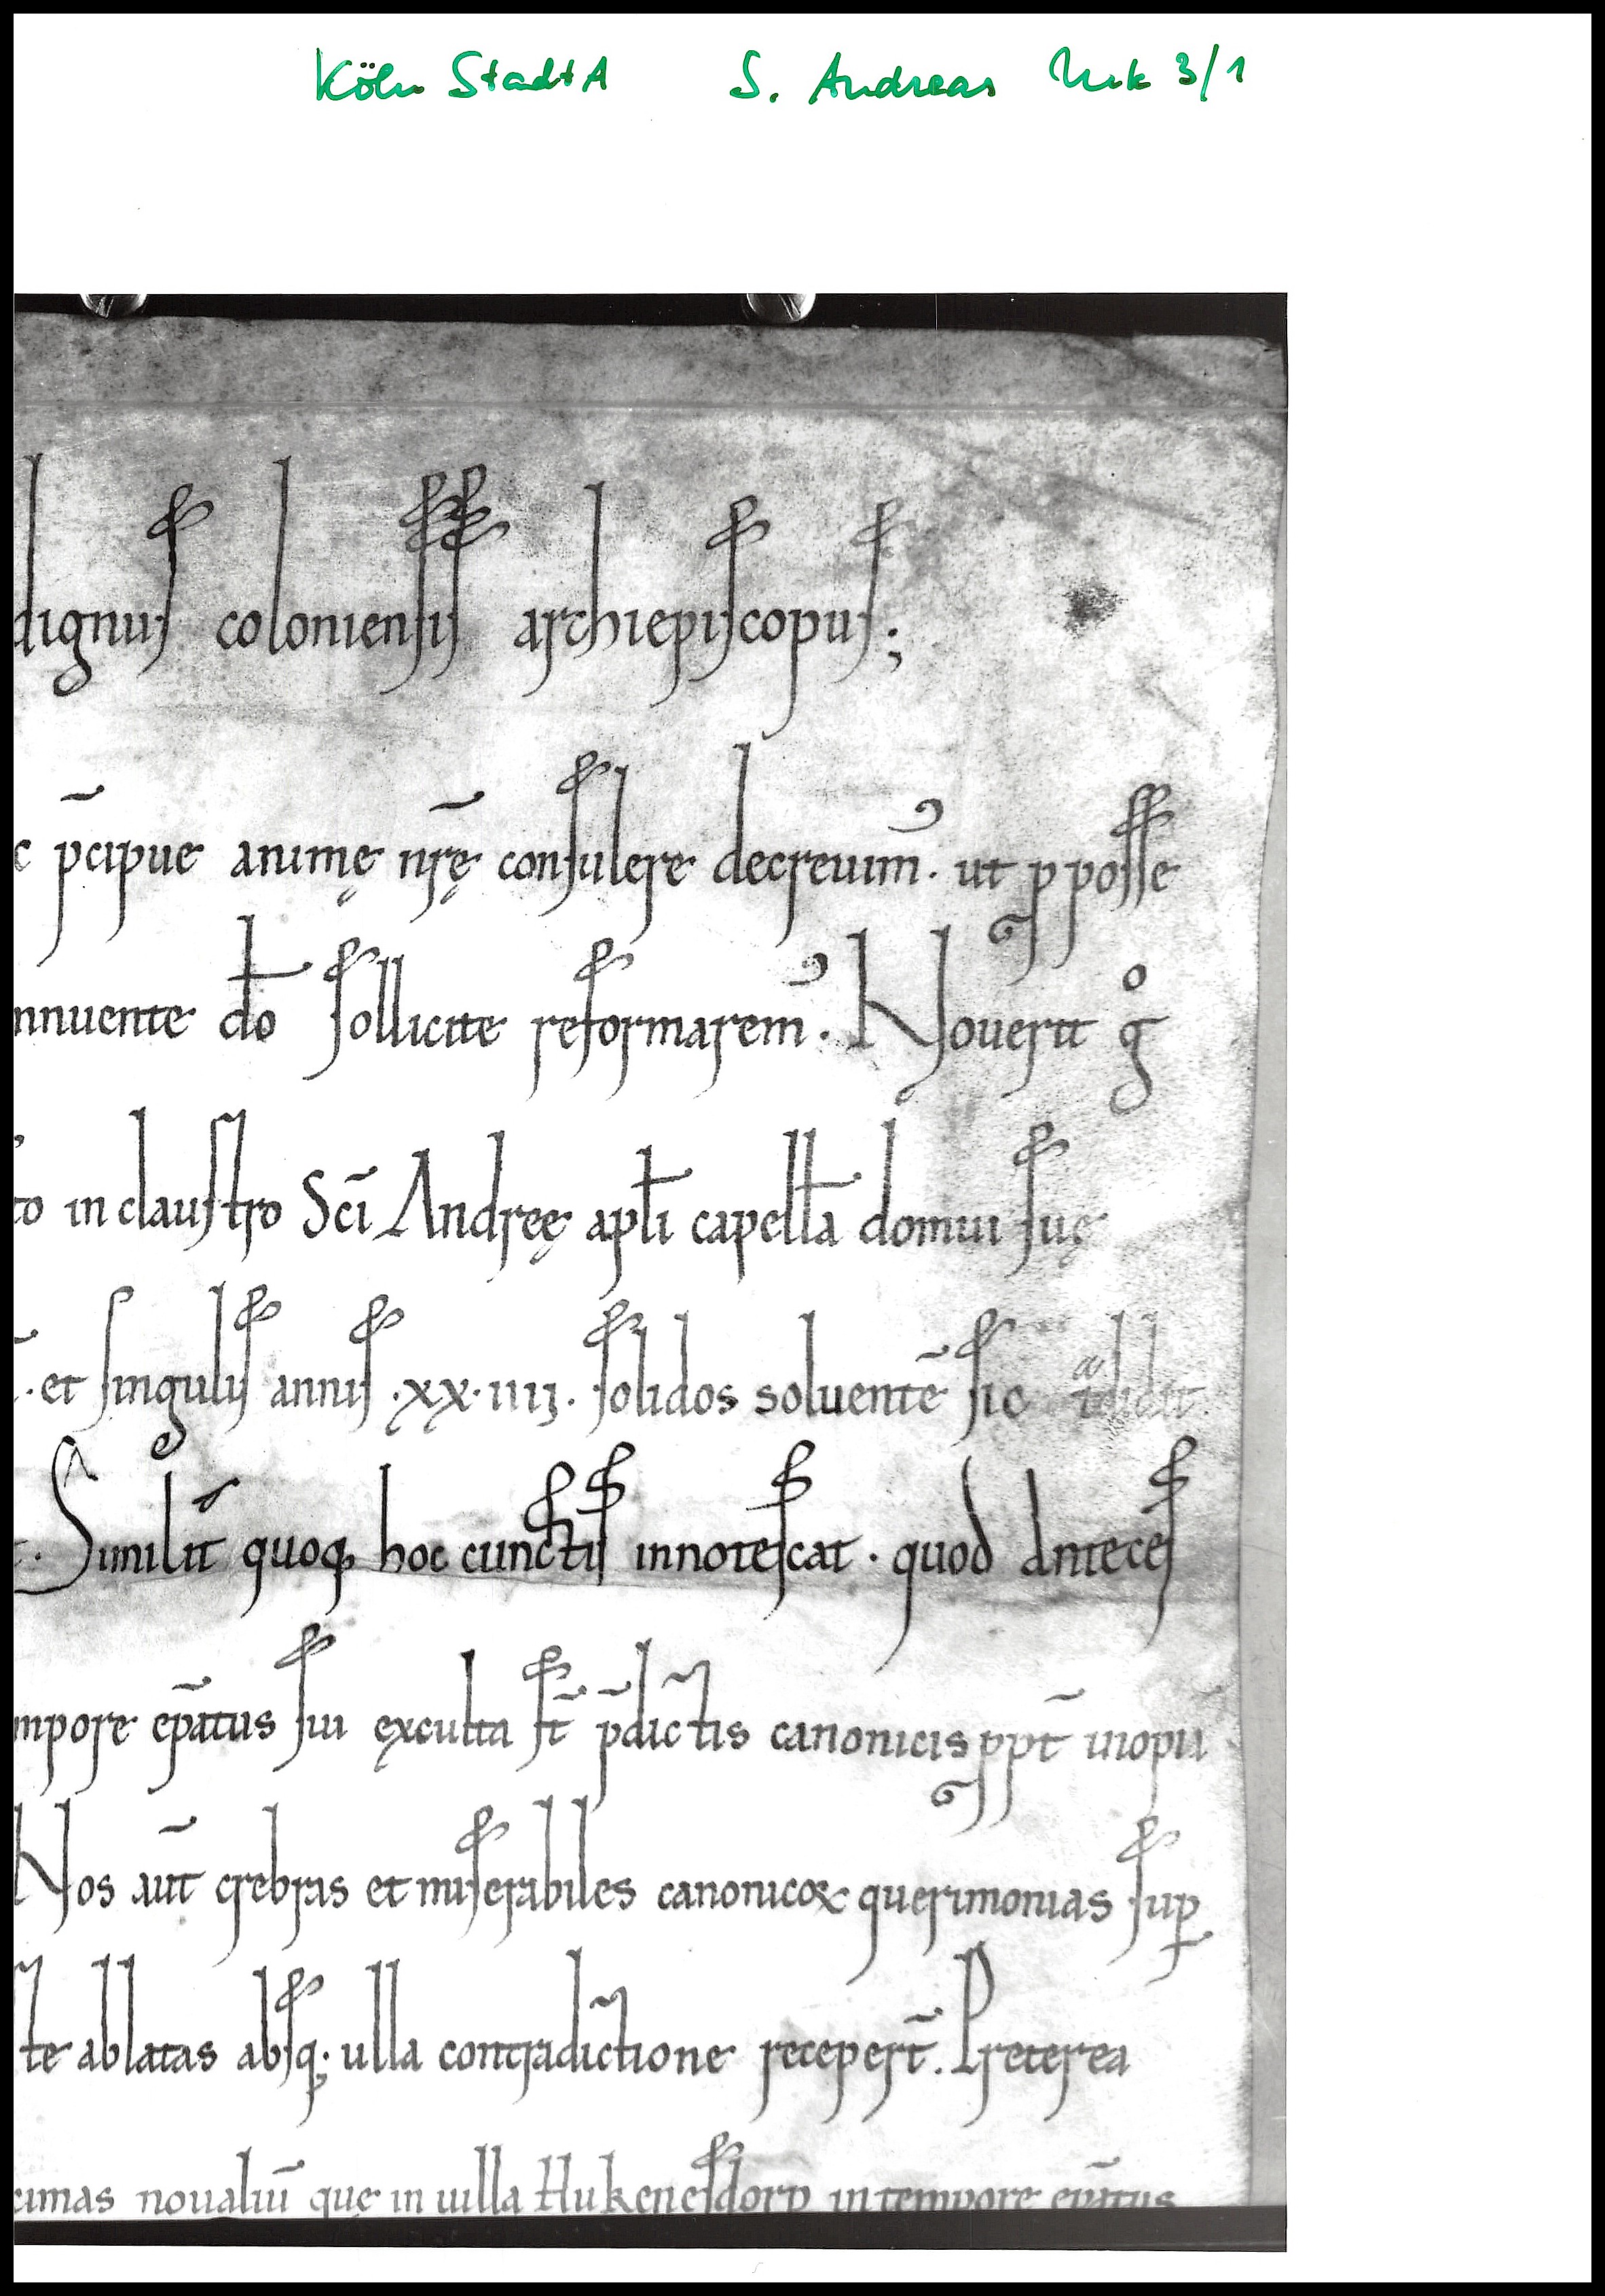 Köln StadtA S. Andreas Urk 3/1
dignus coloniensis archiepiscopus;
c p̄cipue animę nr̄ę consulere decreuim᾽. ut ꝓ posse
nnuente dō sollicite reformarem᾽. Nouerit gͦ
to in claustro Scī Andreę apłi capełła domui suę
. et singulis annis .xx.iiij. solidos soluentē sic tͣdidit
. Similit̄ quoq; hoc cunctis innotescat. quod Anteces
mpore ep̄atus sui ęxculta st̄ p̄dictis canonicis ꝓpt̄ inopiā
Nos aut̄ crebras et miserabiles canonicoꝝ querimonias suꝑ
te ablatas absq; ulla contradictione recepert̄. Preterea
cimas noualiū quę in uilla Hukenesdorp in tempore ep̄atus